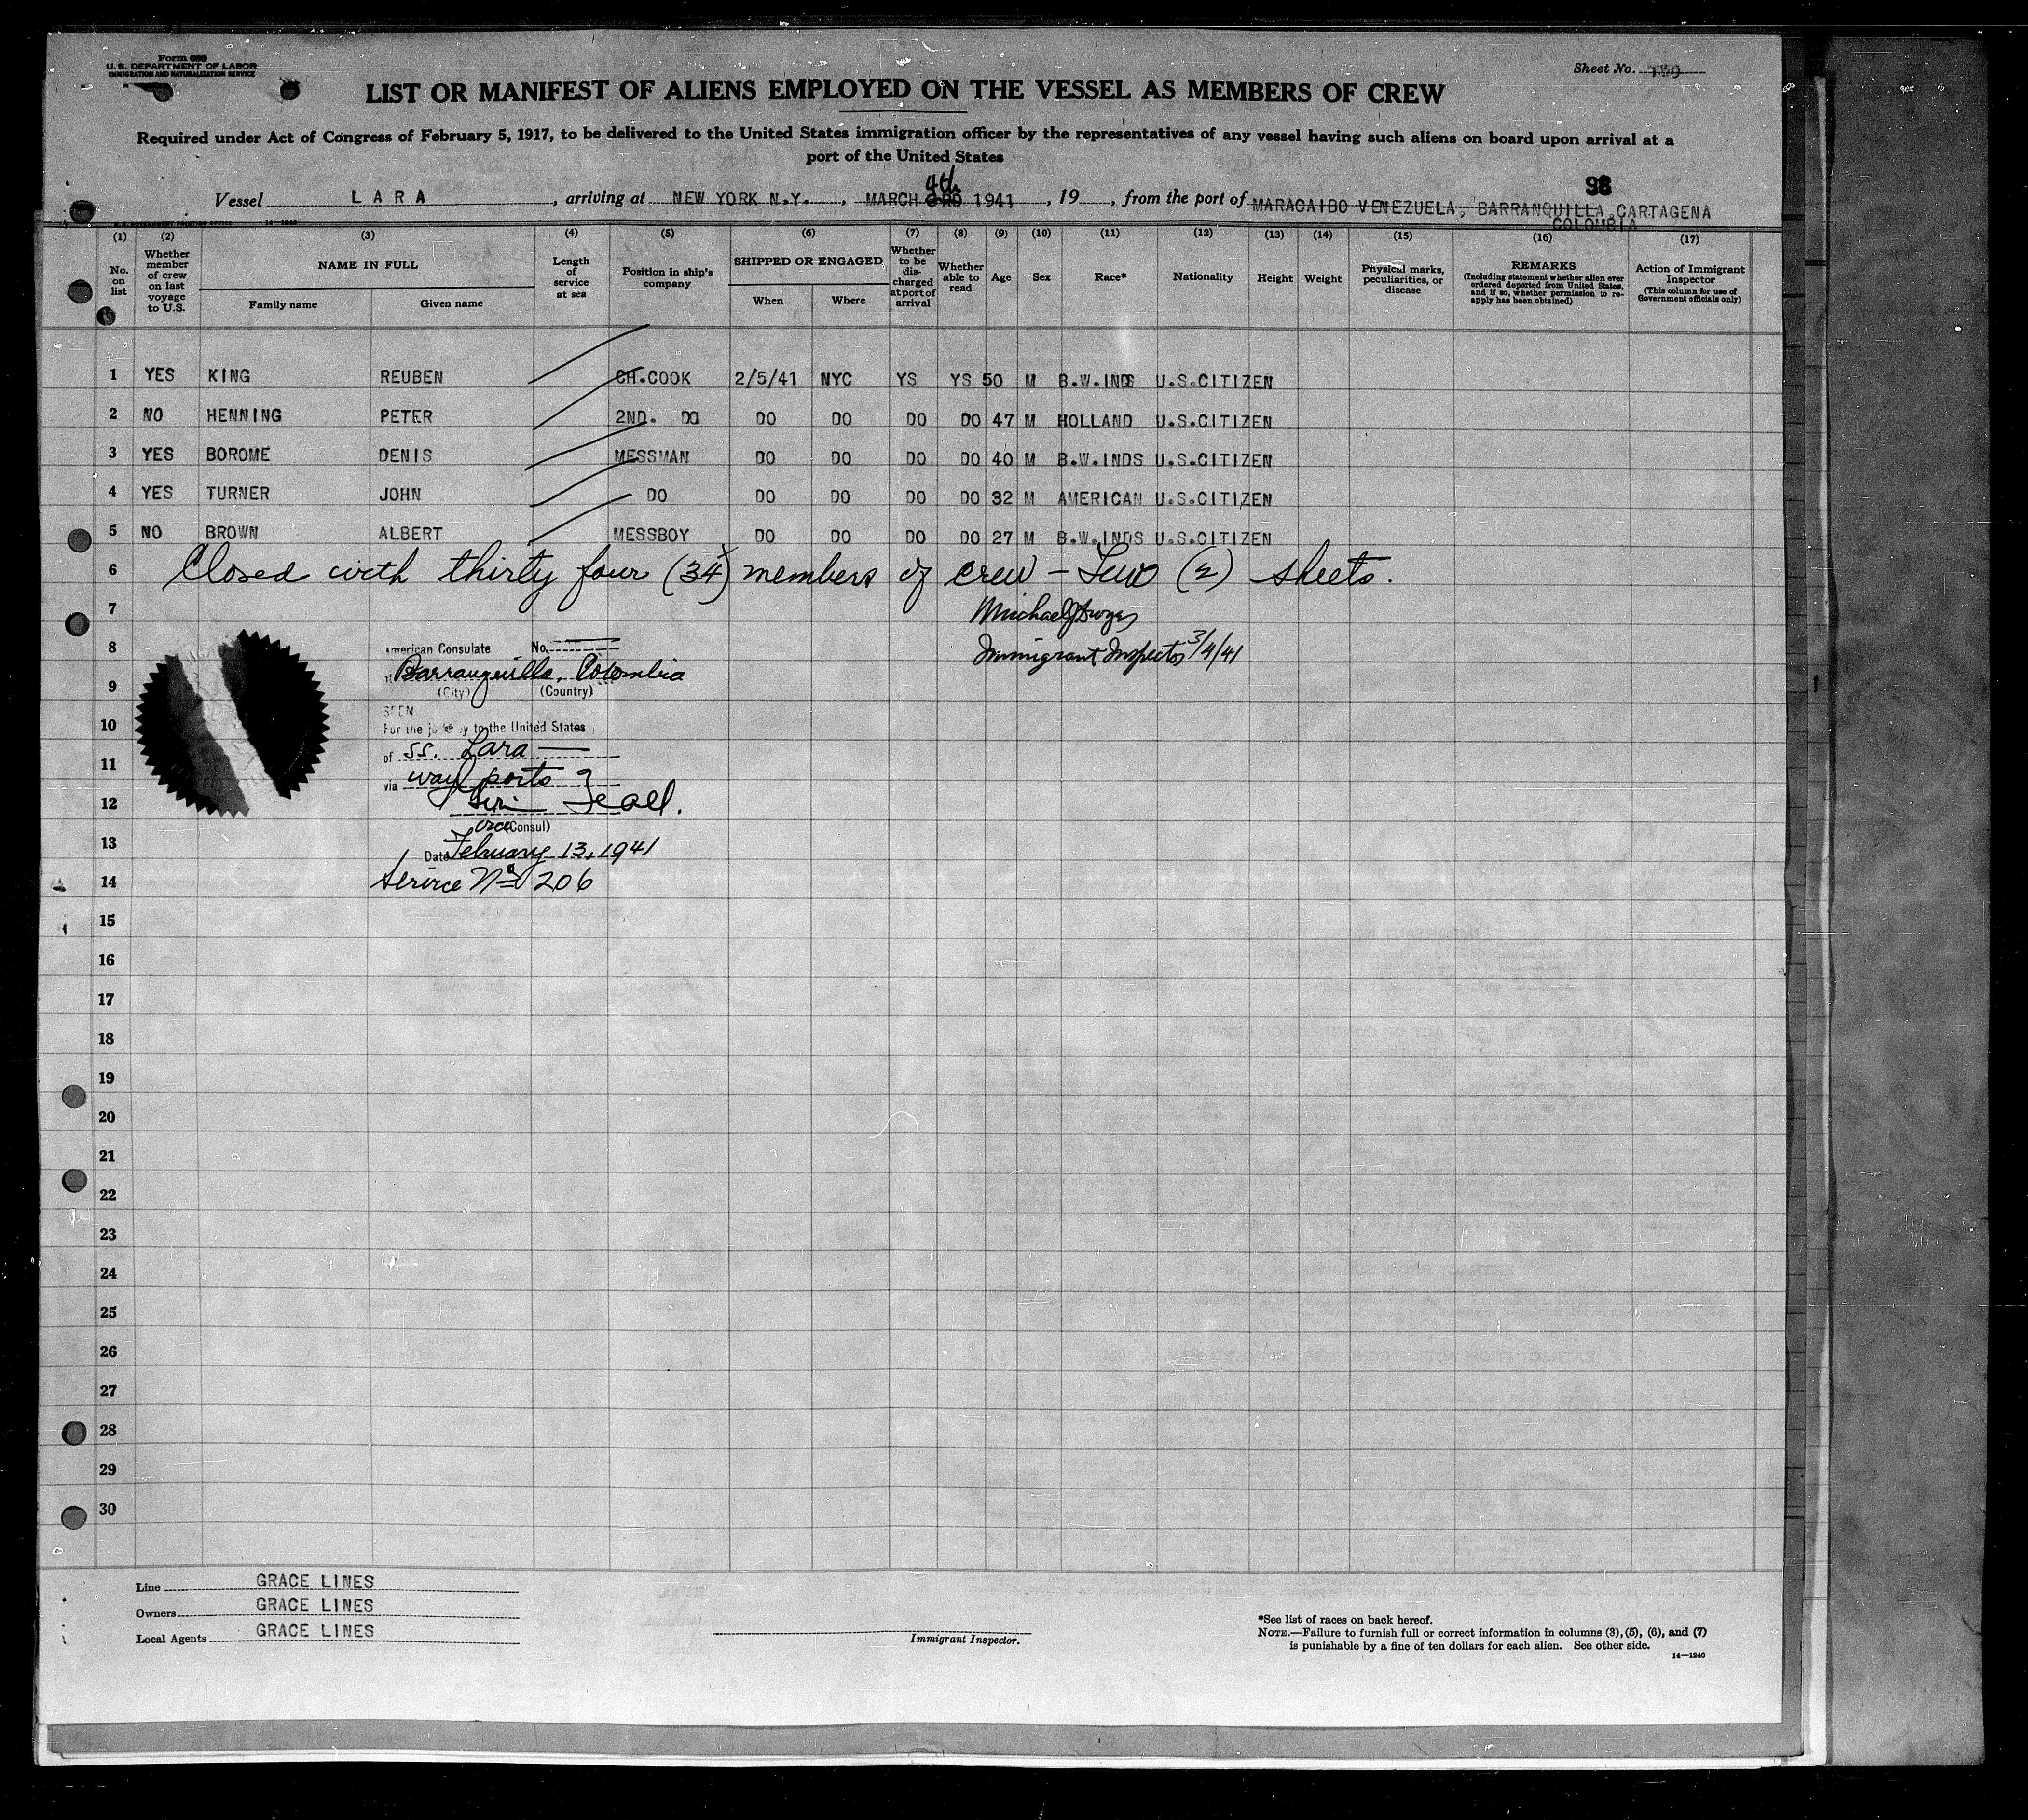 Form 680
U. S. DEPARTMENT OF LABOR
IMMIGRATION AND NATURALIZATION SERVICE
Sheet No. TWO
LIST OR MANIFEST OF ALIENS EMPLOYED ON THE VESSEL AS MEMBERS OF CREW
Required under Act of Congress of February 5, 1917, to be delivered to the United States immigration officer by the representatives of any vessel having such aliens on board upon arrival at a
port of the United States
98
4th
Vessel LARA, arriving at NEW YORK N.Y., MARCH 3RD 1941, 19, from the port of MARACAIBO VENEZUELA, BARRANQUILLA CARTAGENA
COLOMBIA
U. S. GOVERNMENT PRINTING OFFICE 14-1240
(1) (2) (3) (4) (5) (6) (7) (8) (9) (10) (11) (12) (13) (14) (15) (16) (17)
No. on list
Whether member of crew on last voyage to U.S.
NAME IN FULL
Family name Given name
Length of service at sea
Position in ship's company
SHIPPED OR ENGAGED
When Where
Whether to be discharged at port of arrival
Whether able to read
Age
Sex
Race*
Nationality
Height
Weight
Physical marks, peculiarities, or disease
REMARKS
(Including statement whether alien ever ordered deported from United States, and if so, whether permission to re-apply has been obtained)
Action of Immigrant Inspector
(This column for use of Government officials only)
1 YES KING REUBEN CH.COOK 2/5/41 NYC YS YS 50 M B.W.INDS U.S.CITIZEN
2 NO HENNING PETER 2ND. DO DO DO DO DO 47 M HOLLAND U.S.CITIZEN
3 YES BOROME DENIS MESSMAN DO DO DO DO 40 M B.W.INDS U.S.CITIZEN
4 YES TURNER JOHN DO DO DO DO DO 32 M AMERICAN U.S.CITIZEN
5 NO BROWN ALBERT MESSBOY DO DO DO DO 27 M B.W.INDS U.S.CITIZEN
6 Closed with thirty four (34) members of crew - Two (2) sheets.
7 Michael
8 Immigrant Inspector 3/4/41
American Consulate No.
Barranquilla, Colombia
9 (City) (Country)
SEEN
10 For the journey to the United States
of ss. Lara
11
via way ports
12
vice (Consul)
13 Date February 13, 1941
14 Service No 206
15
16
17
18
19
20
21
22
23
24
25
26
27
28
29
30
Line GRACE LINES
Owners GRACE LINES
Local Agents GRACE LINES
Immigrant Inspector.
*See list of races on back hereof.
NOTE.—Failure to furnish full or correct information in columns (3), (5), (6), and (7)
is punishable by a fine of ten dollars for each alien. See other side.
14—1240